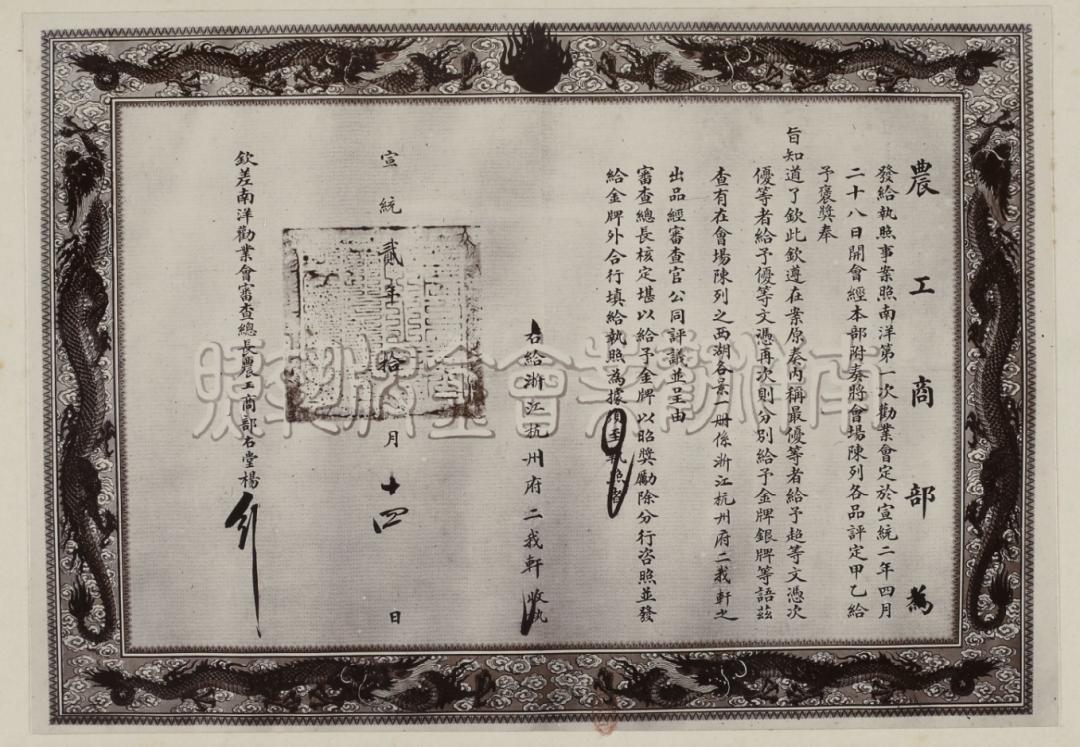 農工商部為
發給執照事案照南洋第一次勸業會定於宣統二年四月
二十八日開會經本部附奏將會場陳列各品評定甲乙給
予褒獎奉
旨知道了欽此欽遵在案原奏內稱最優等者給予超等文憑次
優等者給予優等文憑再次則分別給予金牌銀牌等語茲
查有在會場陳列之西湖各景一册係浙江杭州府二我軒之
出品經審查官公同評議並呈由
審查總長核定堪以給予金牌以昭獎勵除分行咨照並發
給金牌外合行填給執照為據須至執照者
右給浙江杭州府二我軒收執
宣統貳年拾月十四日
欽差南洋勸業會審查總長農工商部右堂楊
南洋勸業會金牌執照